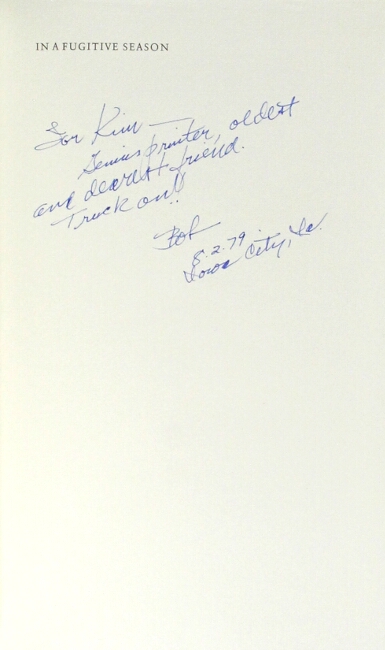 IN A FUGITIVE SEASON
For Kim —
Genius printer, oldest
and dearest friend.
Truck on!!
Bob
8.2.79
Iowa City, Ia.